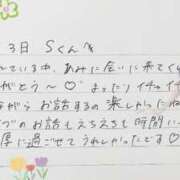 3日 Sくんへ
しているのね、あみに会いに来てくれ
がとう〜♡ まったりイチャイチャ
ながらお話するの楽しかったね
づのお話もえちえちも時間に
厚に過ごせてうれしかったです♡